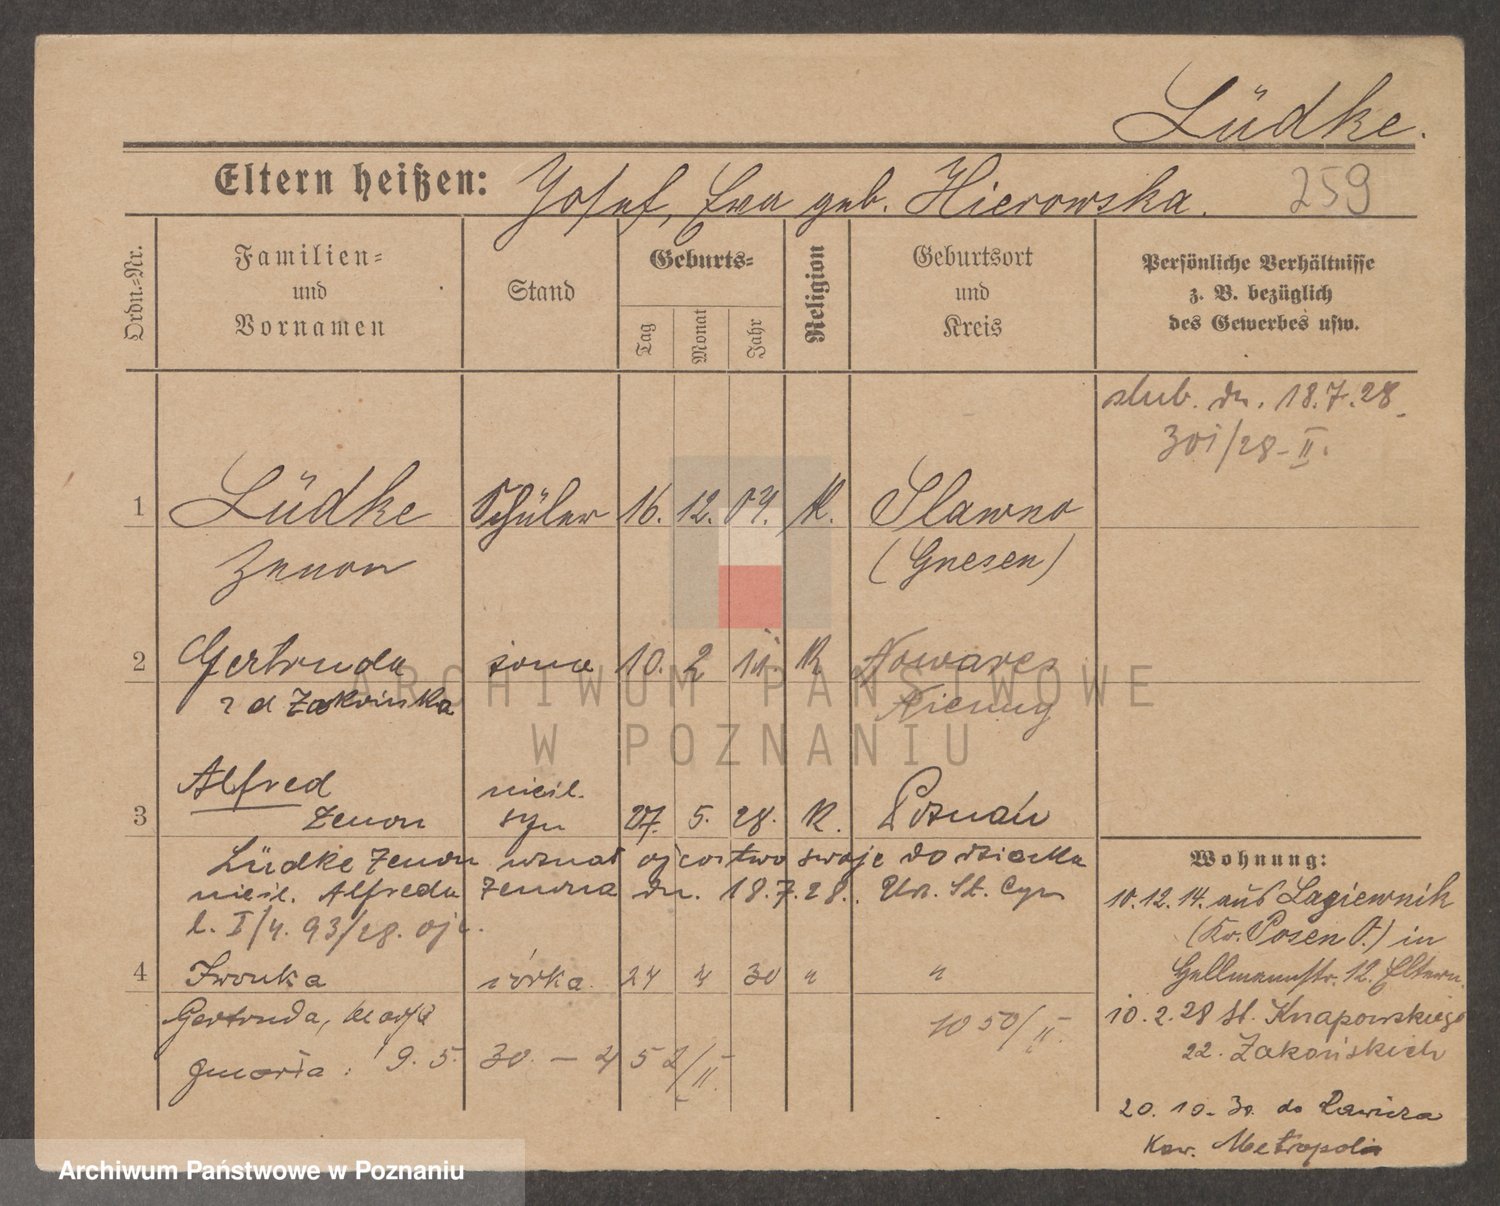 Lüdke.
Eltern heißen: Josef, Ewa geb. Hierowska.
259
Ordn.-Nr.
Familien-
und
Vornamen
Stand
Geburts-
Tag
Monat
Jahr
Religion
Geburtsort
und
Kreis
Persönliche Verhältnisse
z. B. bezüglich
des Gewerbes usw.
slub. dn. 18.7.28
301/28-II.
1 Lüdke Schüler 16. 12. 07. K. Slawno
Zenon (Gnesen)
2 Gertruda żona 10. 2 K
z d Zakońska
Alfred nieśl.
3 Zenon syn 27. 5. 28. K. Poznań
Lüdke Zenon uznał ojcostwo swoje do dziecka
nieśl. Alfreda Zenona dn. 18.7.28. Urz. St. Cyw
l. I/4. 93/28. ojc.
4 Iwonka córka 24 4 30 " "
Gertruda, Marja 1050/II.
zmarła: 9. 5. 30. - 452/II.
Wohnung:
10.12.14. aus Lagiewnik
(Kr. Posen O.) in
Gellmannstr. 12. Eltern.
10.2.28 ul. Knapowskiego
22. Zakońskich
20.10.30 do Rawicza
Kaw. Metropolis
ARCHIWUM PAŃSTWOWE
W POZNANIU
Archiwum Państwowe w Poznaniu